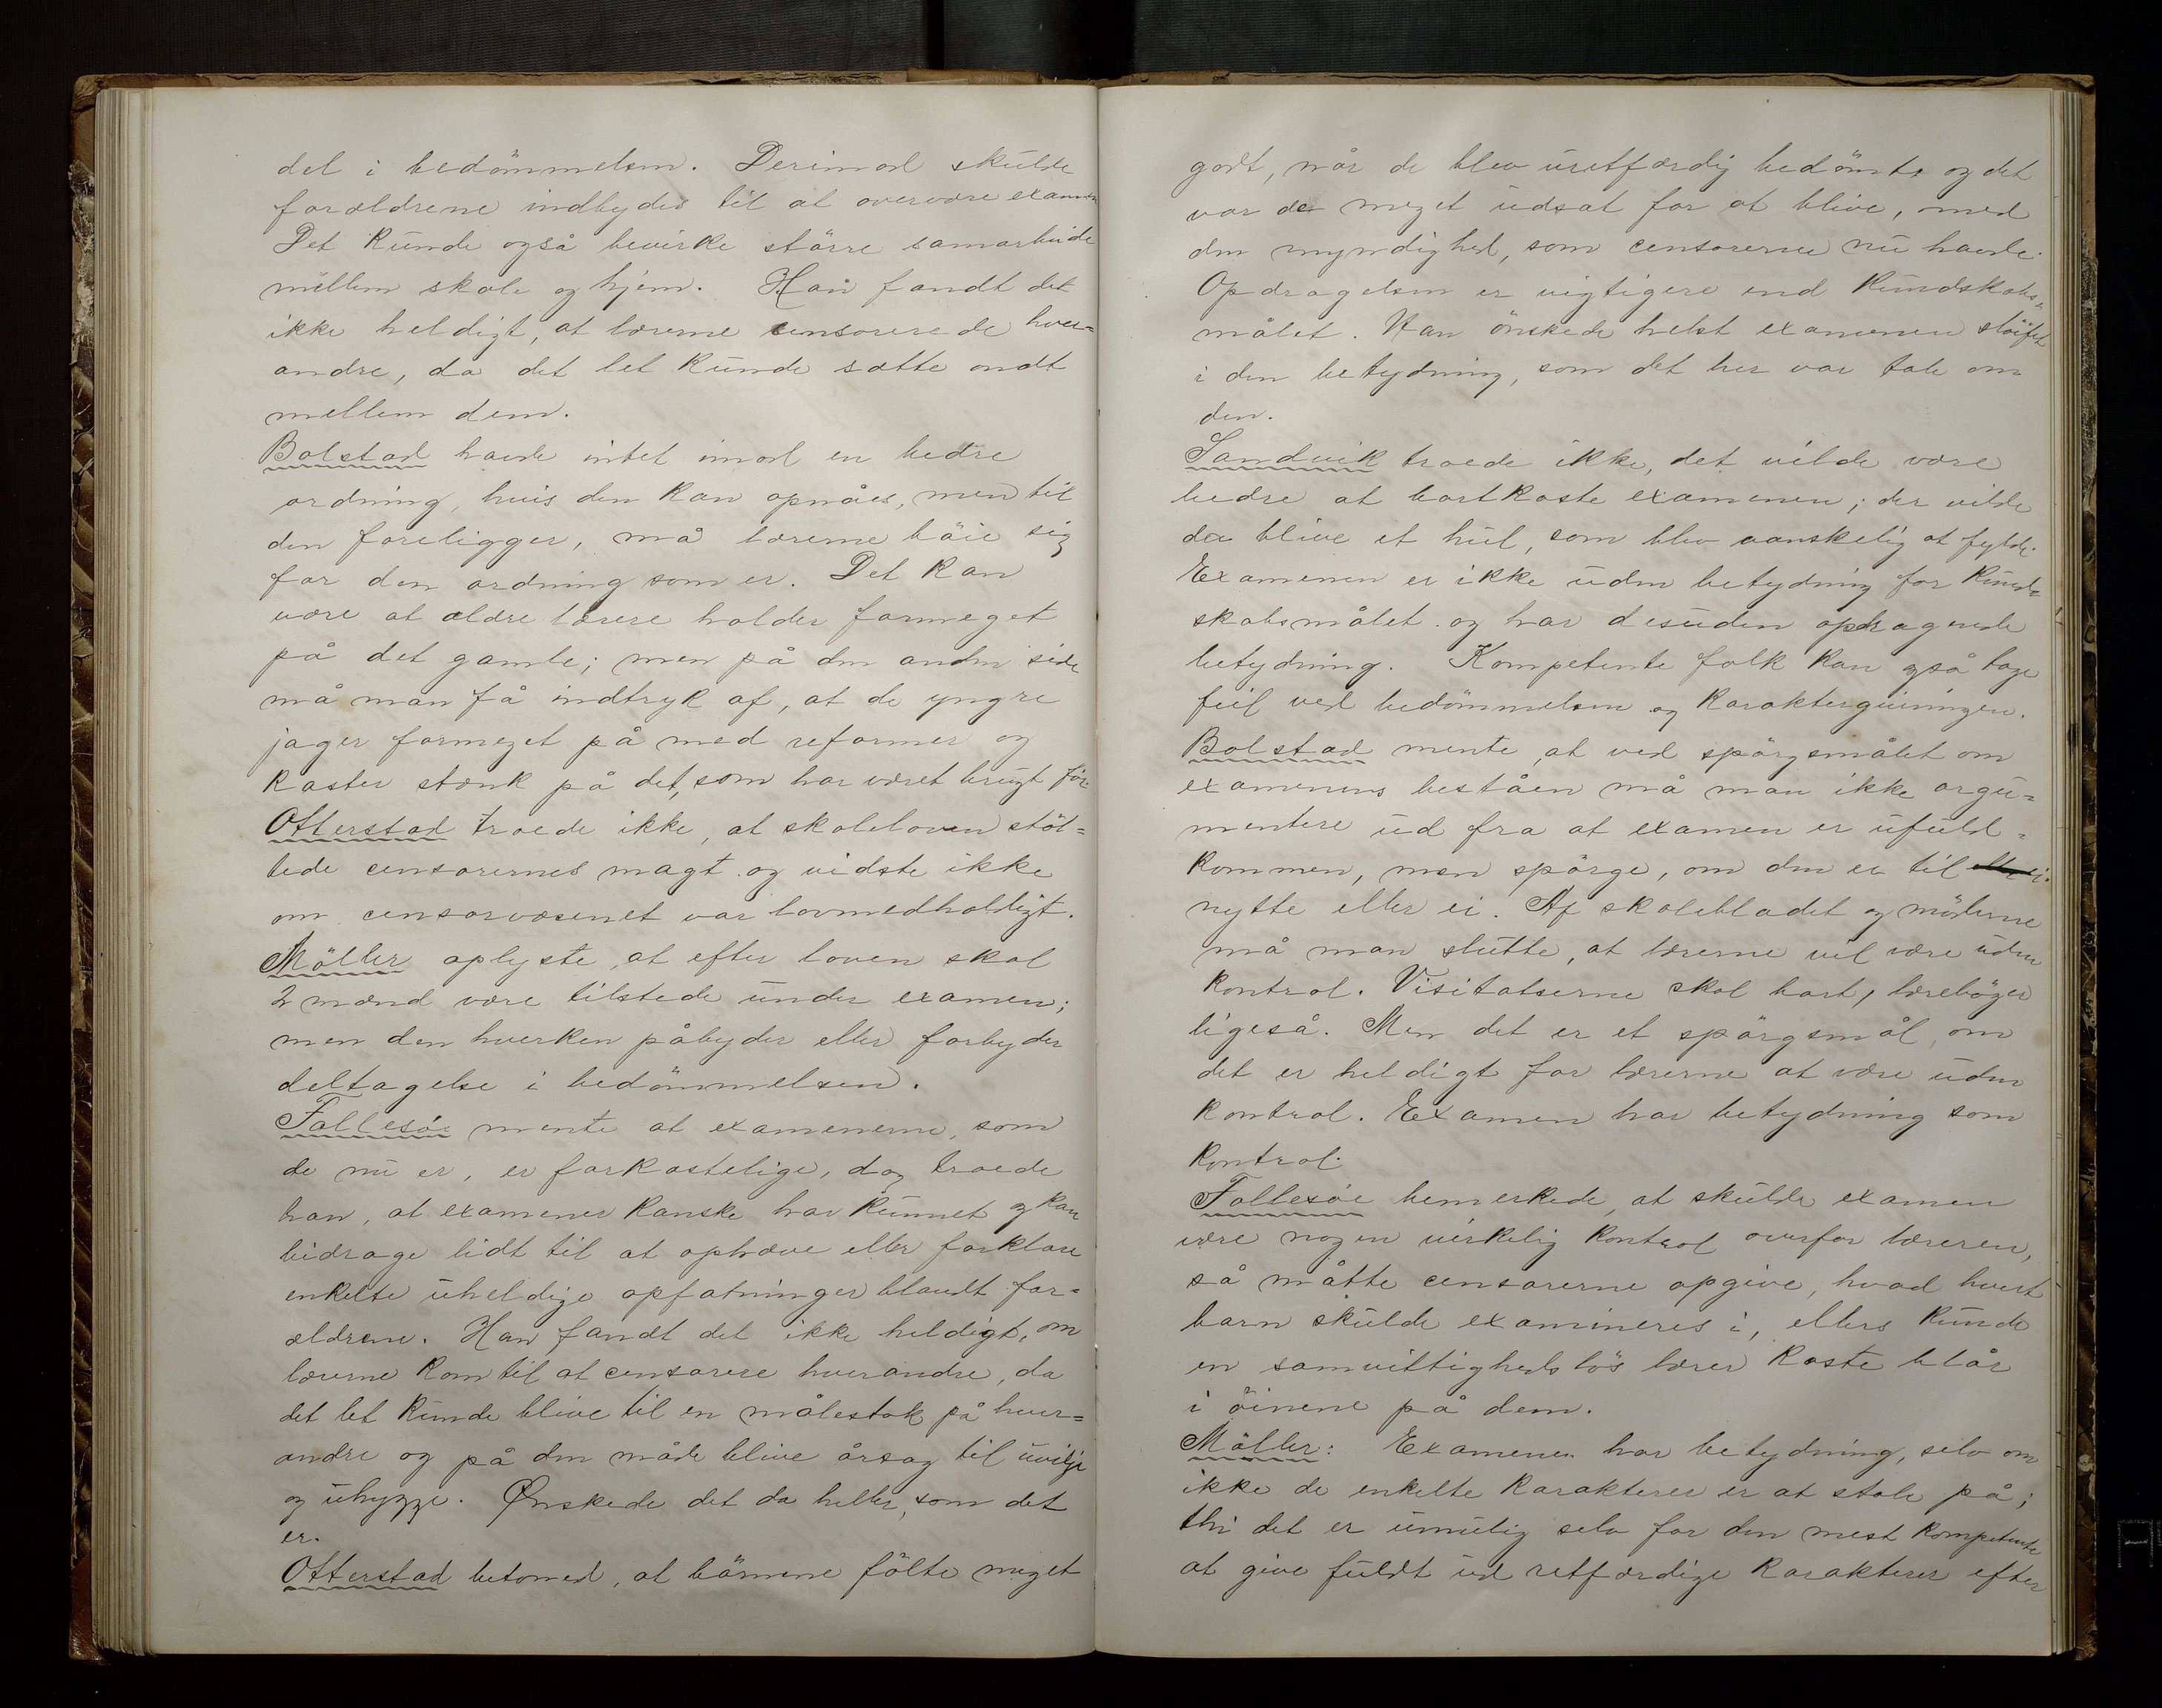 del i bedömmelsen. Derimod skulde
forældrene indbydes til at overvære examen
Det kunde også bevirke större samarbeide
mellem skole og hjem. Han fandt det
ikke heldigt, at lærerne censorerede hver=
andre, da det let kunde sætte ondt
mellem dem.
Bolstad havde intet imod en bedre
ordning, hvis den kan opnåes, men til
den foreligger, må lærerne böie sig
for den ordning som er. Det kan
være at ældre lærere holder formeget
på det gamle; men på den anden side
må man få indtryk af, at de yngre
jager formeget på med reformer og
kaster stænk på det, som har været brugt för.
Otterstad troede ikke, at skoleloven stöt=
tede censorernes magt og vidste ikke
om censorvæsenet var lovmedholdigt.
Möller oplyste, at efter loven skal
2 mænd være tilstede under examen;
men den hverken påbyder eller forbyder
deltagelse i bedömmelsen.
Follesöe mente at examenerne, som
de nu er, er forkastelige, dog troede
han, at examener kanske har kunnet og kan
bidrage lidt til at ophæve eller forklare
enkelte uheldige opfatninger blandt for=
ældrene. Han fandt det ikke heldigt, om
lærerne kom til at censorere hverandre, da
det let kunde blive til en målestok på hver=
andre og på den måde blive årsag til uvilje
og uhygge. Ønskede det da heller, som det
er.
Otterstad betoned, at börnene fölte meget
godt, når de blev uretfærdig bedömte og det
var de meget udsat for at blive, med
den myndighed, som censorerne nu havde.
Opdragelsen er vigtigere end kundskabs=
målet. Han önskede helst examenen slöifet
i den betydning, som det her var tale om
den.
Sandvik troede ikke, det vilde være
bedre at bortkaste examenen; der vilde
da blive et hul, som blev vanskelig at fylde.
Examenen er ikke uden betydning for kund=
skabsmålet og har desuden opdragende
betydning. Kompetente folk kan også tage
feil ved bedömmelsen og karaktergivningen.
Bolstad mente, at ved spörgsmålet om
examenens beståen må man ikke argu=
mentere ud fra at examen er ufuld=
kommen, men spörge, om den er til eller ei.
nytte eller ei. Af skolebladet og möderne
må man slutte, at lærerne vil være uden
kontrol. Visitatserne skal bort, læreböger
ligeså. Men det er et spörgsmål, om
det er heldigt for lærerne at være uden
kontrol. Examen har betydning som
kontrol.
Follesöe bemerkede, at skulde examen
være nogen virkelig kontrol overfor læreren,
så måtte censorerne opgive, hvad hvert
barn skulde examineres i, ellers kunde
en samvittighedslös lærer kaste blår
i öinene på dem.
Möller: Examenen har betydning, selv om
ikke de enkelte karakterer er at stole på;
thi det er umulig selv for den mest kompetente
at give fuldt ud retfærdige karakterer efter